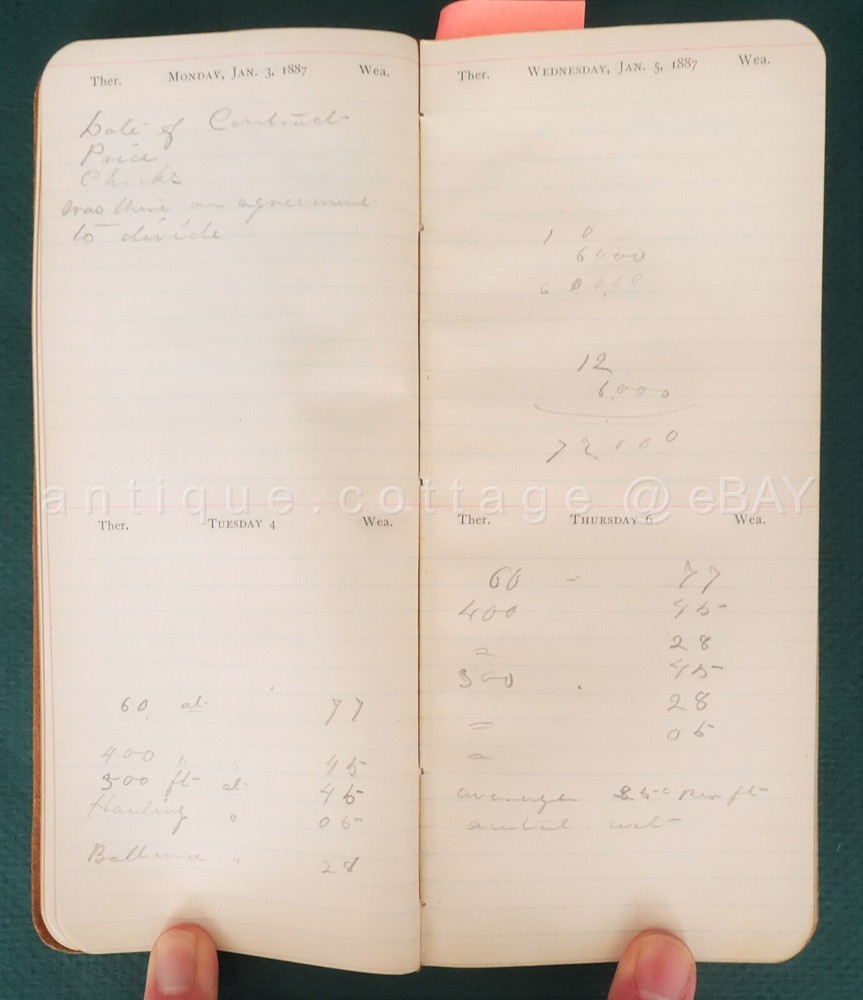 Ther. Monday, Jan. 3, 1887 Wea.
Date of Contract
Price
Checks
was there an agreement
to divide
Ther. Tuesday 4 Wea.
60 at 77
400 " " 45
300 ft at 45
Hauling " 05
Ballance " 28
Ther. Wednesday, Jan. 5, 1887 Wea.
10
6000
60000
12
6000
72000
Ther. Thursday 6 Wea.
60 = 77
400 45
= 28
300 45
28
= 05
=
average 25c per ft
cost
antique.cottage@eBAY